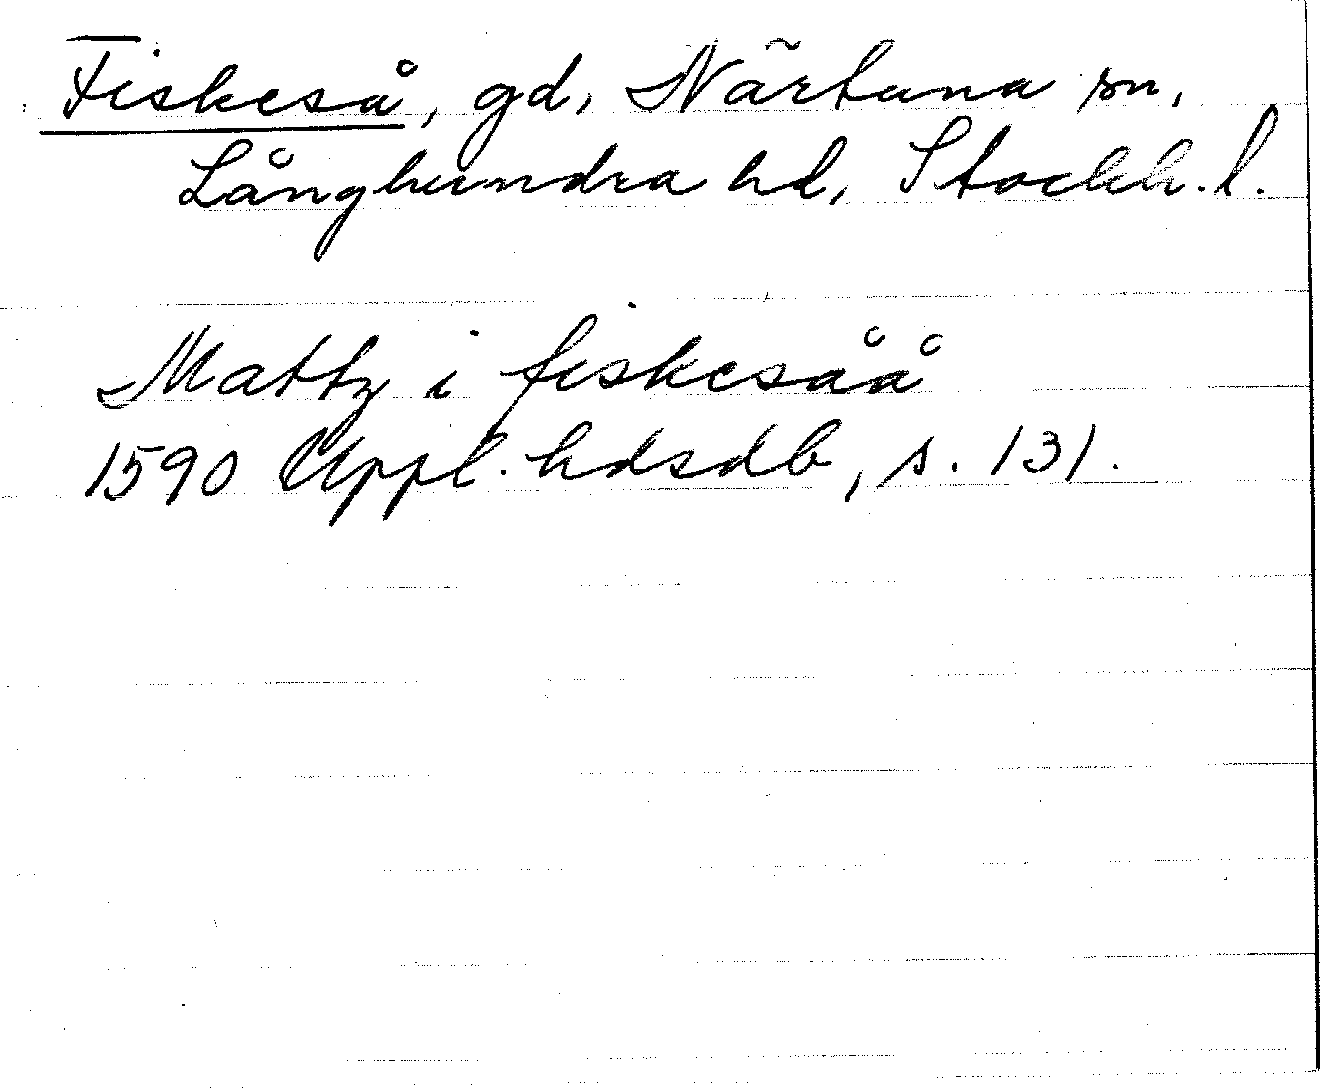 Fiskeså, gd, Närtuna sn,
Långhundra hd, Stockh. l.
Mattz i fiskesåå
1590 Uppl. hdsdb, s. 131.